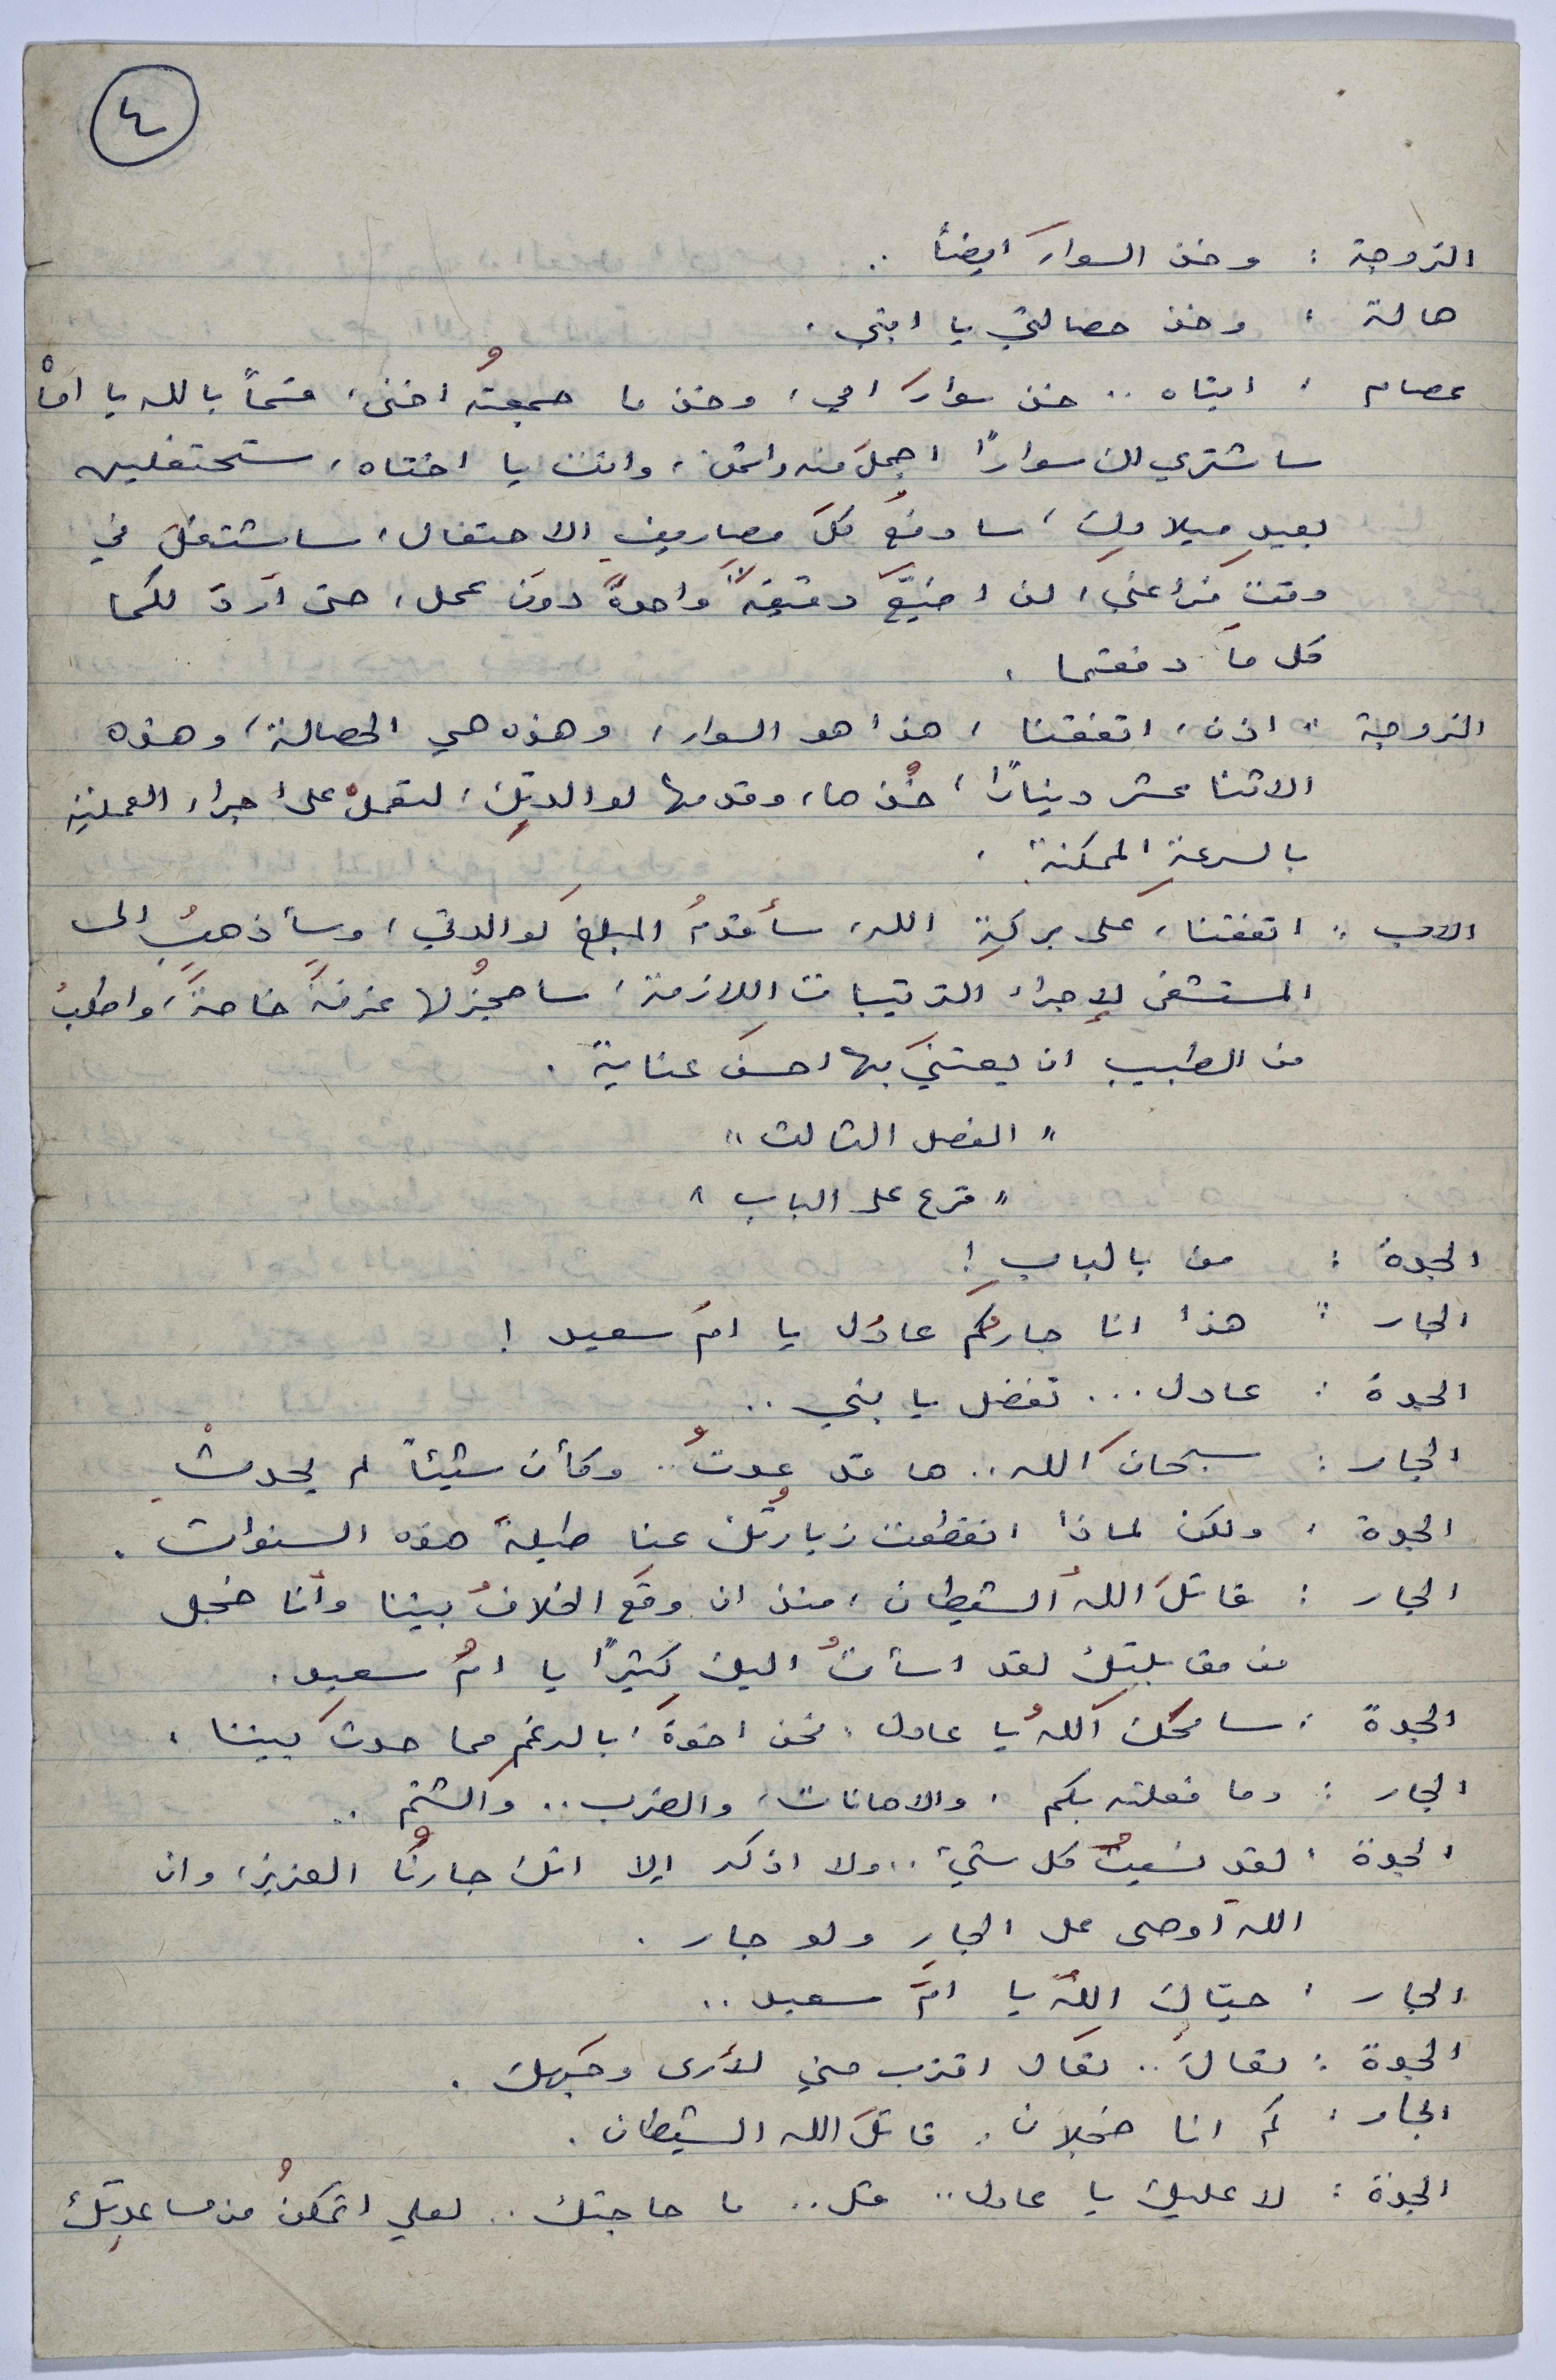 ٤
الزوجة : وخذ السوارَ ايضاً ..
هالة : وخذ حصالتي يا ابتي .
عصام : ابتاه .. خذ سوارَ امي ، وخذ ما جمعتهُ اختي ، قسماً بالله يا اماهْ
سأشتري لك سواراً اجملَ منه واثمن ، وانت يا اختاه ، ستحتفلين
بعيدِ ميلادِك ، سادفعُ كلَ مصاريفِ الاحتفال ، ساشتغلُ في
وقتِ فراغي ، لن اضيّعَ دقيقةً واحدةً دونَ عمل ، حتى اردَ لكما
كل ما دفعتما .
الزوجة : اذن ، اتفقنا ، هذا هو السوار ، وهذه هي الحصالة ، وهذه
الاثنا عشر ديناراً ، خُذها ، وقدمها لوالدتِك ، لتعملْ على اجراء العملية
بالسرعةِ الممكنة .
الاب : اتفقنا ، على بركةِ الله ، سأقدمُ المبلغَ لوالدتي ، وسأذهبُ الى
المستشفى لإجراء الترتيبات اللازمة ، ساحجزُ لها غرفةً خاصةً ، واطلبُ
من الطبيب ان يعتنيَ بها احسنَ عناية .
" الفصل الثالث "
" قرع على الباب "
الجدة : من بالبابِ !
الجار : هذا انا جاركُم عادل يا امَ سعيد !
الجدة : عادل ... تفضل يا بني ..
الجار : سبحانَ الله .. ها قد عدتُ .. وكأن شيئاً لم يحدثْ
الجدة : ولكن لماذا انقطعت زيارتُك عنا طيلةَ هذه السنوات .
الجار : قاتلَ اللهُ الشيطان ، منذ ان وقعَ الخلافُ بيننا وأنا خجل
من مقابلتِك لقد اسأتُ اليك كثيراً يا امُ سعيد .
الجدة : سامحكَ اللهُ يا عادل ، نحن اخوة ، بالرغمِ مما حدثَ بيننا .
الجار : وما فعلته بكم ، والاهانات ، والضرب .. والشتم ..
الجدة : لقد نسيتُ كل شيء .. ولا اذكر إلا انك جارنُا العزيز ، وان
الله أوصى على الجارِ ولو جار .
الجار : حيّاكِ اللهُ يا امَ سعيد ..
الجدة : تعالَ .. تعَال اقترب مني لأرى وجهَك .
الجار : كم انا خجلان . قاتلَ الله الشيطان .
الجدة : لا عليك يا عادل .. قل .. ما حاجتك .. لعلي اتمكنُ من مساعدتِك